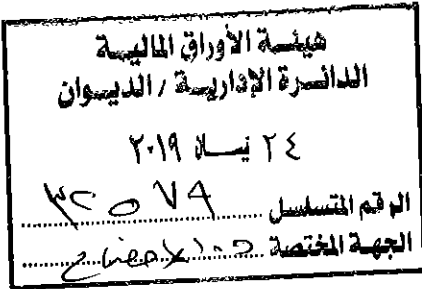 هيئة الأوراق المالية
الدائرة الإدارية / الديوان
٢٤ نيسان ٢٠١٩
الرقم المتسلسل ٣٢٥٧٩
الجهة المختصة الإفصاح